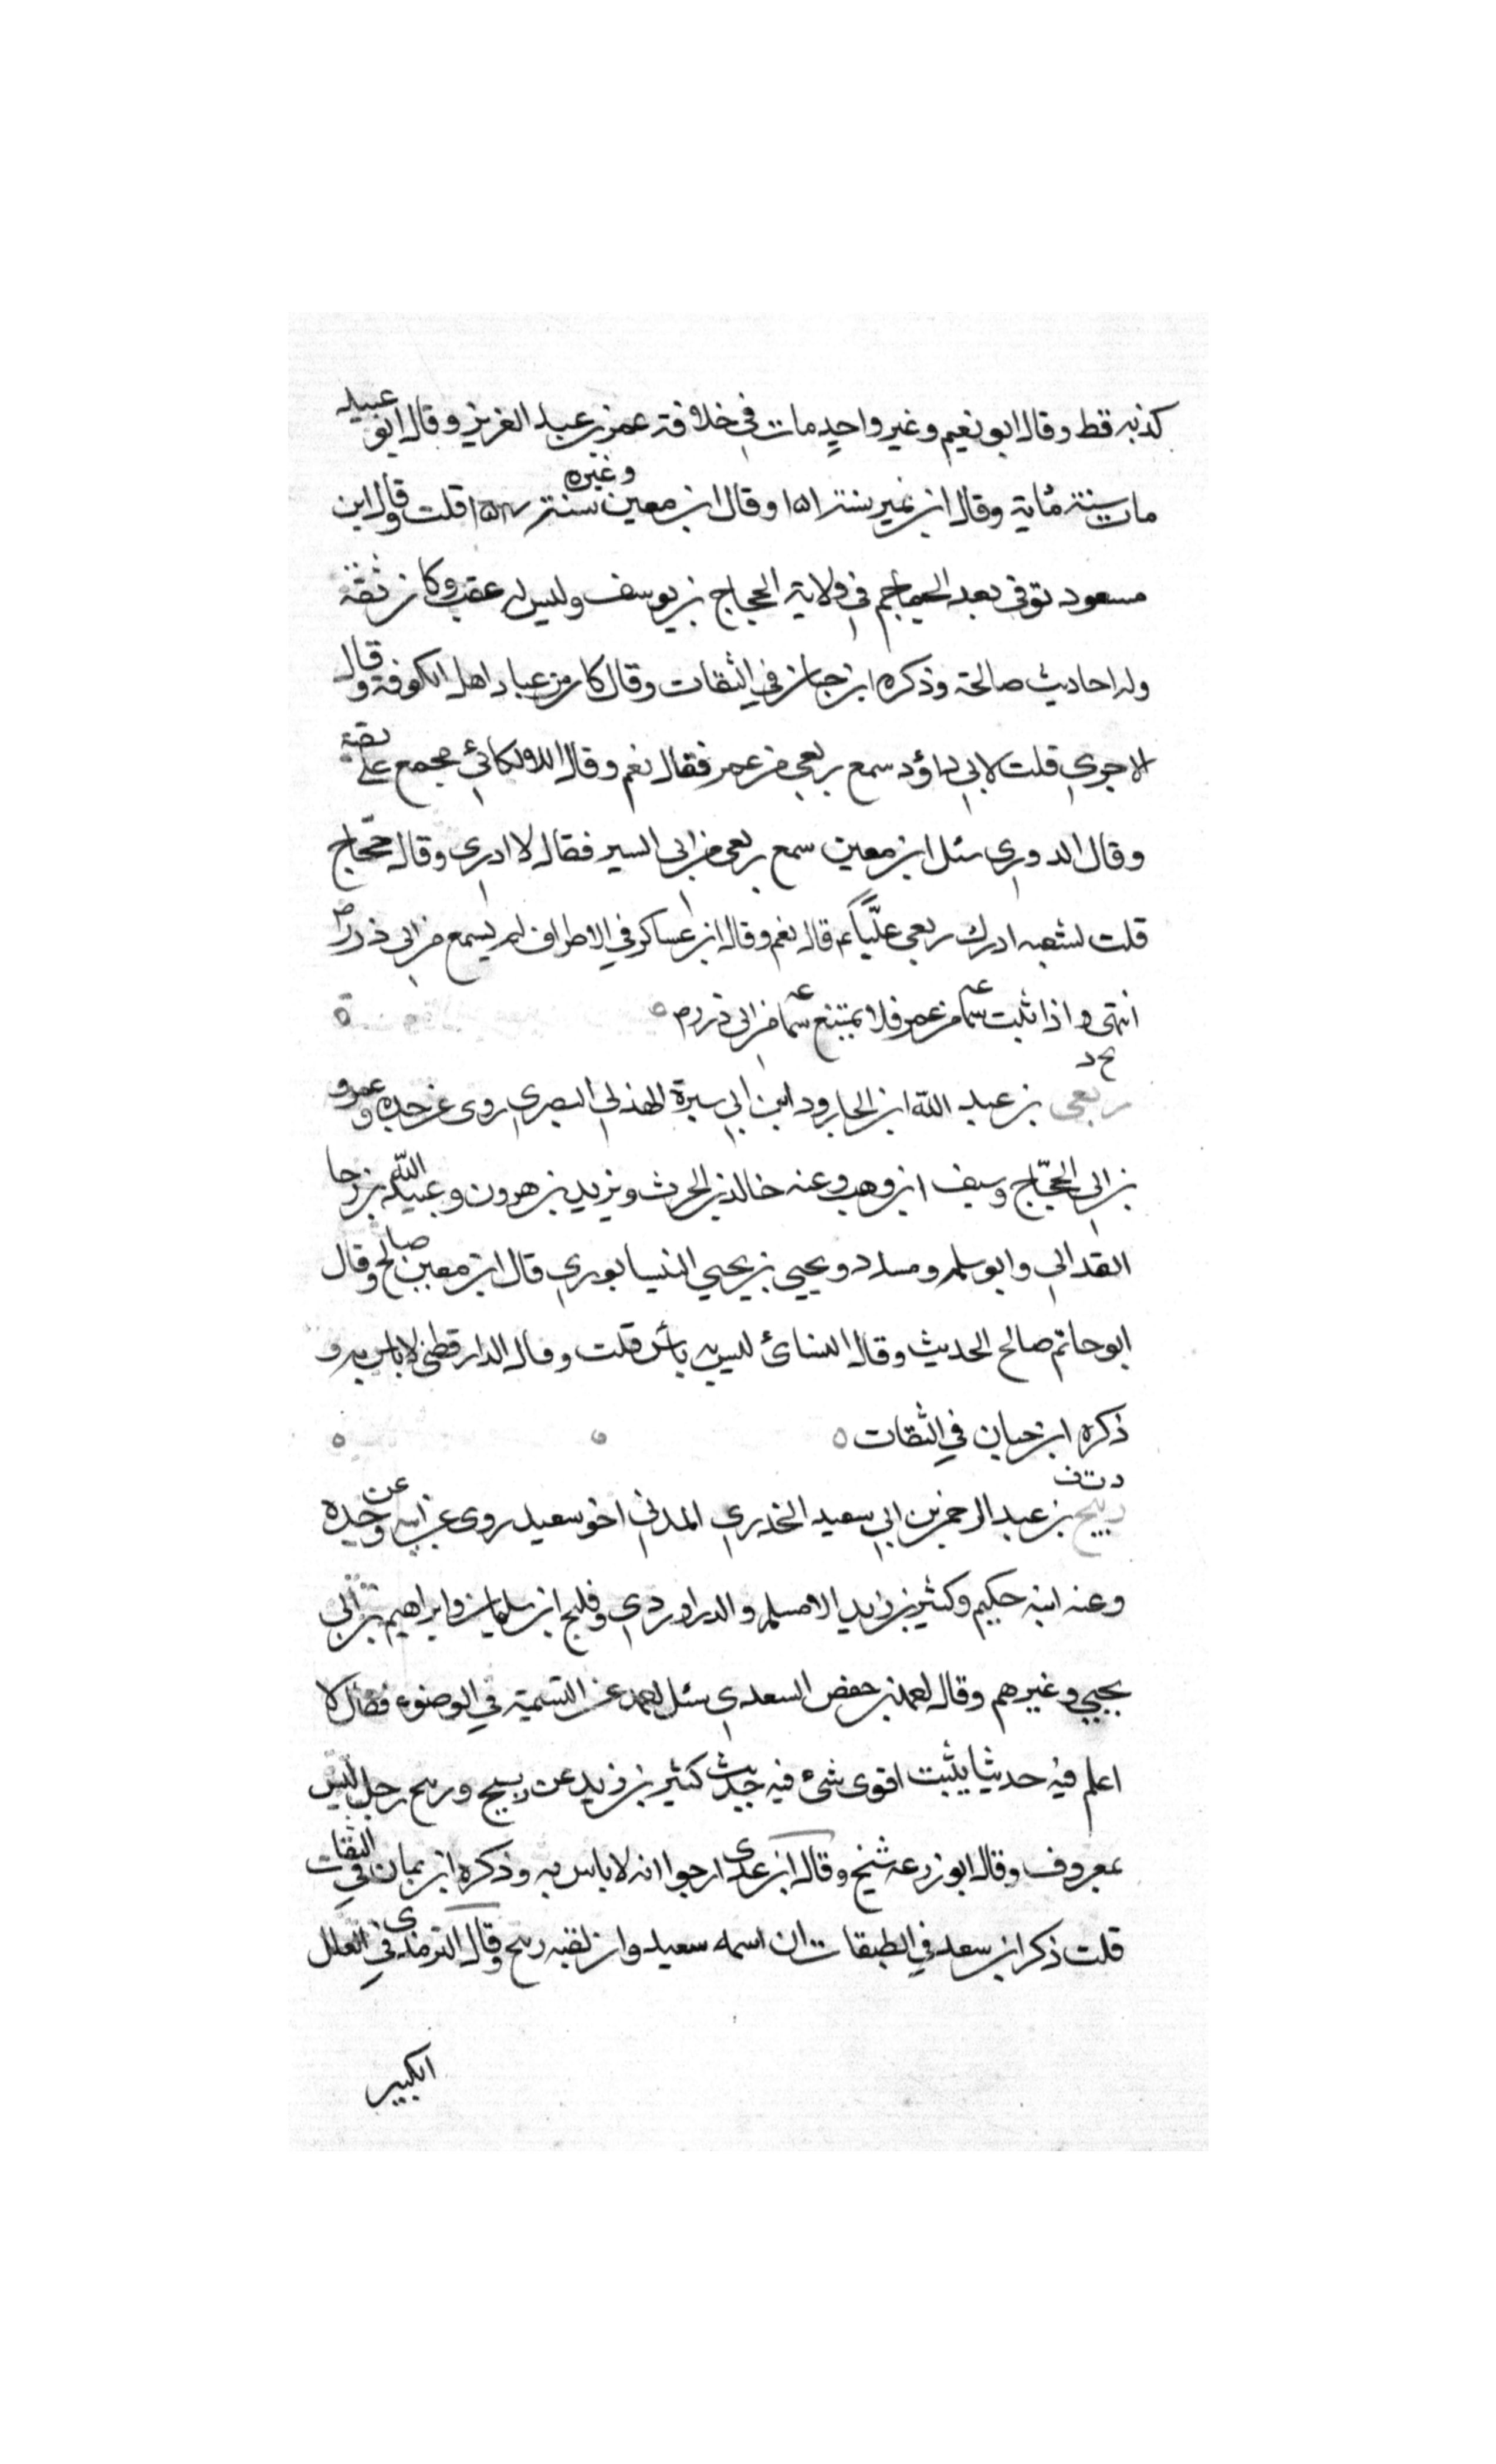 كذبه قط وقال ابو نعيم وغير واحد مات في خلافة عمر بن عبد العزيز وقال ابو عبيد
مات سنة مائة وقال ابن نمير سنة ١٥١ وقال ابن معين وغيره سنة قلت وقال ابن
مسعود توفى بعد الجماجم في ولاية الحجاج بن يوسف وليس له عقب وكان ثقة
وله احاديث صالحة وذكره ابن حبان في الثقات وقال كان من عباد اهل الكوفة وقال
الاجري قلت لابي داؤد سمع ربعي من عمر فقال نعم وقال اللالكائي مجمع على ثقة
وقال الدوري سئل ابن معين سمع ربعي من ابى اليسر فقال لا ادري وقال حجاج
قلت لشعبه ادرك ربعي عليّاً قال نعم وقال ابن عساكر في الاطراف لم يسمع من ابي ذر
انتهى واذا ثبت سماعه من عمر فلا يمتنع سماعه من ابي ذر
خ د
ربعي بن عبد الله ابن الجارود ابن ابي سبرة الهذلي البصري روى عن جده وعمرو
بن ابي الحجّاج وسيف ابن وهب وعنه خالد بن الحرث ويزيد بن هرون وعبد الله بن رجا
الغداني وابو سلمه ومسدد ويحيى بن يحيي النيسابوري قال ابن معين صالح وقال
ابو حاتم صالح الحديث وقال النسائ ليس به بأس قلت وقال الدارقطني لا باس به و
ذكره ابن حبان في الثقات
د ت ق
ربيح بن عبد الرحمن بن ابي سعيد الخدري المدني اخو سعيد روى عن ابيه وعن جده
وعنه ابنه حكيم وكثير بن زيد الاسلمي والدراوردي وفليح ابن سليمان وابراهيم بن ابي
يحيي وغيرهم وقال احمد بن حفص السعدي سئل احمد عن التسمية في الوضوء فقال لا
اعلم فيه حديثا يثبت اقوى شئ فيه حديث كثير بن زيد عن ربيح وربيح رجل ليس
بمعروف وقال ابو زرعه شيخ وقال ابن عدي ارجوا انه لا باس به وذكره ابن حبان في الثقات
قلت ذكر ابن سعد في الطبقات ان اسمه سعيد وان لقبه ربيح وقال الترمذي في العلل
الكبير